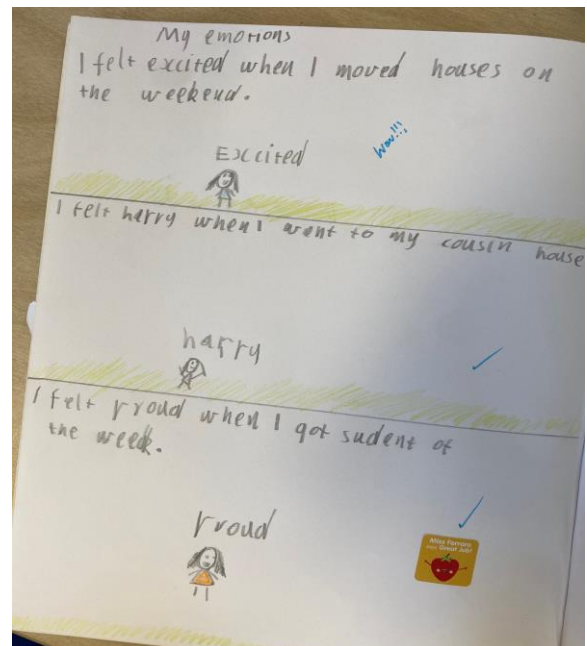 My emotions
I felt excited when I moved houses on
the weekend.
Wow!!!
Excited
I felt harry when I went to my cousin house
harry
I felt proud when I got sudent of
the week.
proud
Miss Ferraro
says Great Job!